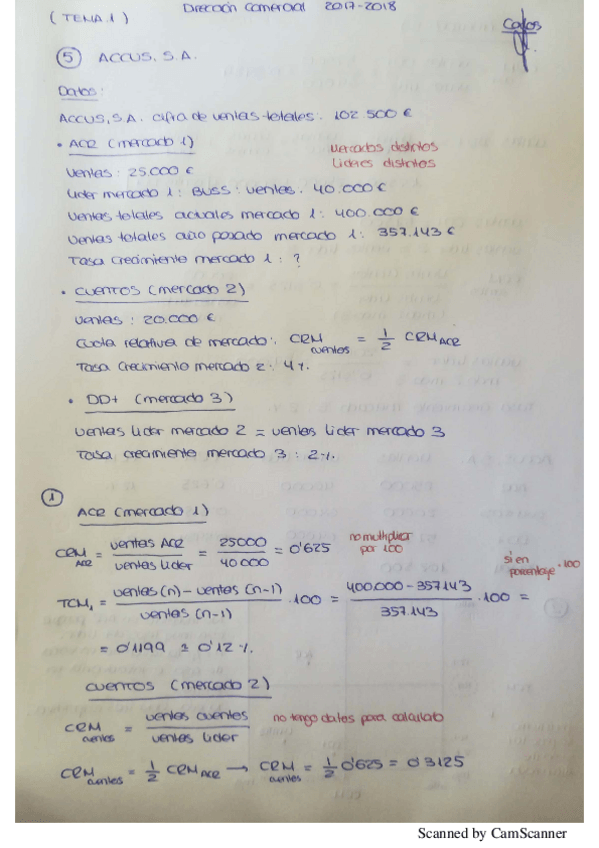 (TEMA.1) Dirección Comercial 2017-2018
Carlos
⑤ ACCUS, S.A.
Datos:
ACCUS, S.A. cifra de ventas totales: 102.500 €
• ACR (mercado 1)
Mercados distintos
Líderes distintos
Ventas: 25.000 €
Líder mercado 1: BUSS: ventas: 40.000 €
Ventas totales actuales mercado 1: 400.000 €
Ventas totales año pasado mercado 1: 357.143 €
Tasa crecimiento mercado 1: ?
• CUENTOS (mercado 2)
Ventas: 20.000 €
Cuota relativa de mercado: CRM cuentos = 1/2 CRM ACR
Tasa crecimiento mercado 2: 4%
• DD+ (mercado 3)
Ventas líder mercado 2 = ventas líder mercado 3
Tasa crecimiento mercado 3: 2%
① ACR (mercado 1)
CRM ACR = ventas ACR / ventas líder = 25000 / 40.000 = 0'625 no multiplicar por 100
si en porcentaje · 100
TCM1 = ventas (n) - ventas (n-1) / ventas (n-1) · 100 = 400.000 - 357143 / 357.143 · 100 =
= 0'1199 ≅ 0'12 %.
CUENTOS (mercado 2)
CRM cuentos = ventas cuentos / ventas líder no tengo datos para calcularlo
CRM cuentos = 1/2 CRM ACR → CRM cuentos = 1/2 0'625 = 0'3125
Scanned by CamScanner